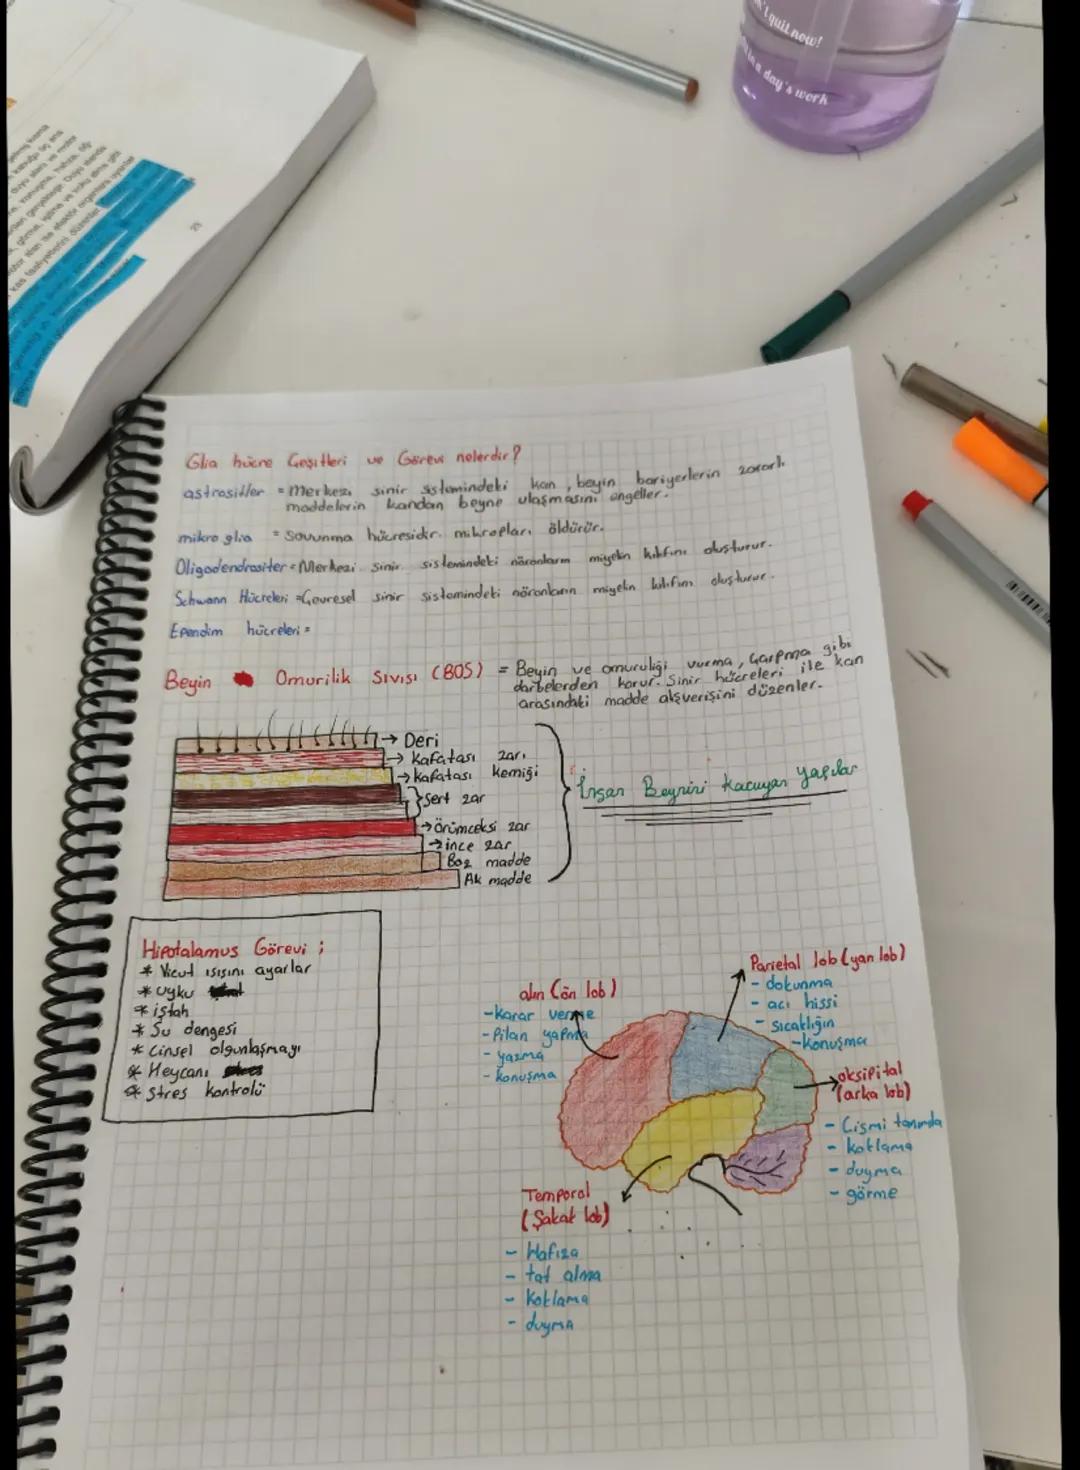 't quit now!
in a day's work
23
Glia hücre Çeşitleri ve Görevi nelerdir?
astrositler = Merkezi sinir sistemindeki kan, beyin bariyerlerin zararlı
maddelerin kandan beyne ulaşmasını engeller.
mikro glia = Savunma hücresidir. mikropları öldürür.
Oligodendrositler = Merkezi sinir sistemindeki nöronların miyelin kılıfını oluşturur.
Schwann Hücreleri = Çevresel sinir sistemindeki nöronların miyelin kılıfını oluşturur.
Ependim hücreleri =
Beyin Omurilik Sıvısı (BOS) = Beyin ve omuruliği vurma, çarpma gibi
darbelerden korur. Sinir hücreleri ile kan
arasındaki madde alışverişini düzenler.
→ Deri
→ Kafatası zarı
→ kafatası kemiği
Sert zar
→ örümceksi zar
→ ince zar
Boz madde
Ak madde
İnsan Beynini Koruyan yapılar
Hipotalamus Görevi ;
* Vücut ısısını ayarlar
* uyku
* iştah
* Su dengesi
* Cinsel olgunlaşmayı
* Heycanı
* Stres kontrolü
alın (ön lob)
- Karar verme
- Pilan yapma
- yazma
- konuşma
Parietal lob (yan lob)
- dokunma
- acı hissi
- sıcaklığın
- konuşma
oksipital
(arka lob)
- Cismi tanımda
- koklama
- duyma
- görme
Temporal
(Şakak lob)
- Hafıza
- tat alma
- Koklama
- duyma